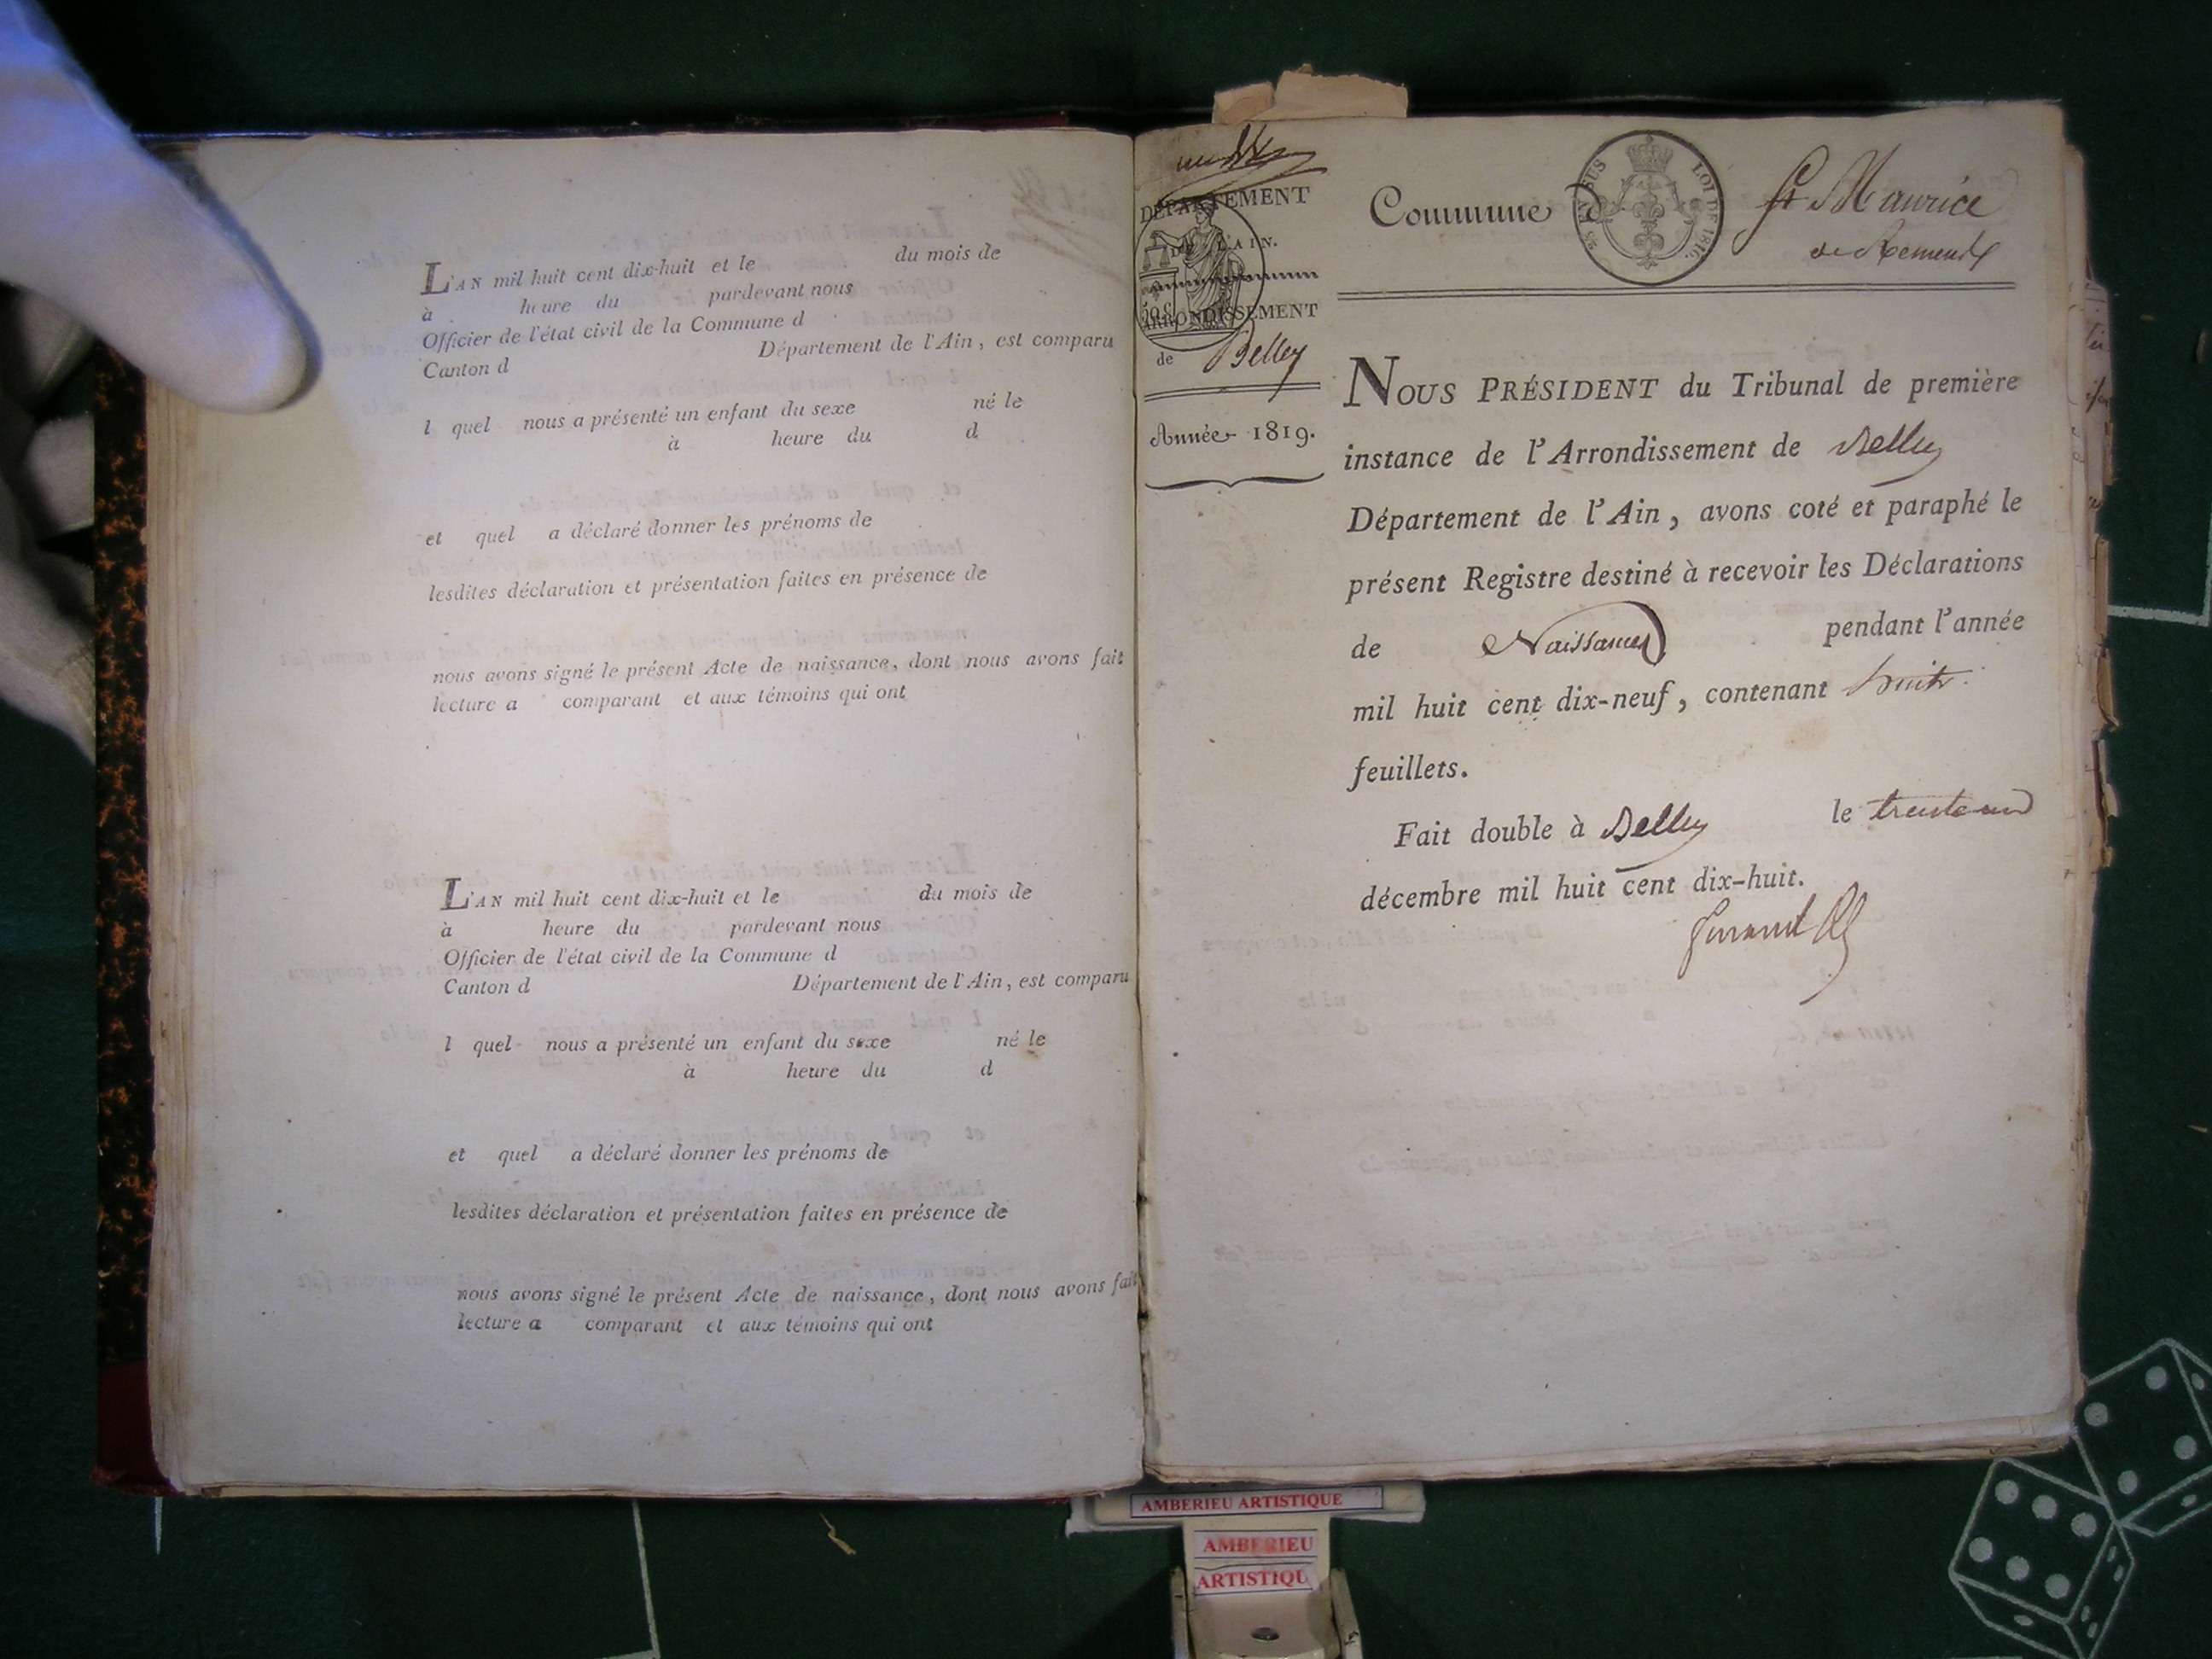 L'AN mil huit cent dix-huit et le du mois de
à heure du pardevant nous
Officier de l'état civil de la Commune d
Canton d Département de l'Ain, est comparu
l quel nous a présenté un enfant du sexe né le
à heure du d
et quel a déclaré donner les prénoms de
lesdites déclaration et présentation faites en présence de
nous avons signé le présent Acte de naissance, dont nous avons fait
lecture a comparant et aux témoins qui ont
L'AN mil huit cent dix-huit et le du mois de
à heure du pardevant nous
Officier de l'état civil de la Commune d
Canton d Département de l'Ain, est comparu
l quel nous a présenté un enfant du sexe né le
à heure du d
et quel a déclaré donner les prénoms de
lesdites déclaration et présentation faites en présence de
nous avons signé le présent Acte de naissance, dont nous avons fait
lecture a comparant et aux témoins qui ont
DÉPARTEMENT
DE L'AIN.
ARRONDISSEMENT
de Belley
Année 1819.
Commune d St Maurice
de Remens
LOI DE 1816.
NOUS PRÉSIDENT du Tribunal de première
instance de l'Arrondissement de Belley
Département de l'Ain, avons coté et paraphé le
présent Registre destiné à recevoir les Déclarations
de Naissances pendant l'année
mil huit cent dix-neuf, contenant huit
feuillets.
Fait double à Belley le trente un
décembre mil huit cent dix-huit.
AMBERIEU ARTISTIQUE
AMBERIEU
ARTISTIQU